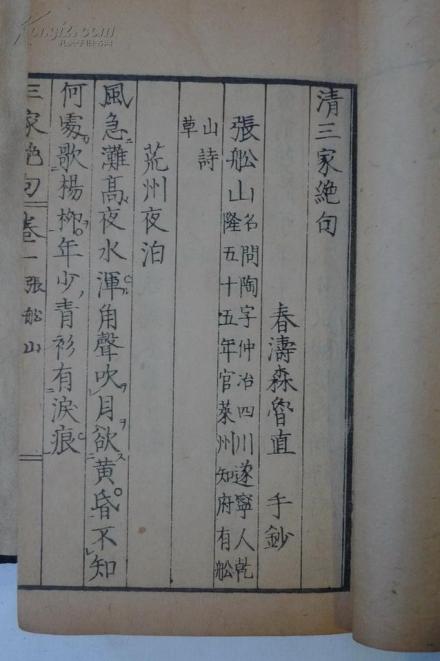 清三家絕句
春濤森魯直 手鈔
張船山名問陶字仲冶四川遂寧人乾
隆五十五年官萊州知府有船
山詩
草
荒州夜泊
風急灘高夜水渾角聲吹月欲黃昏不知
何處歌楊柳年少青衫有淚痕
三家絕句 卷一 張船山
Kongfz.com
孔夫子旧书网